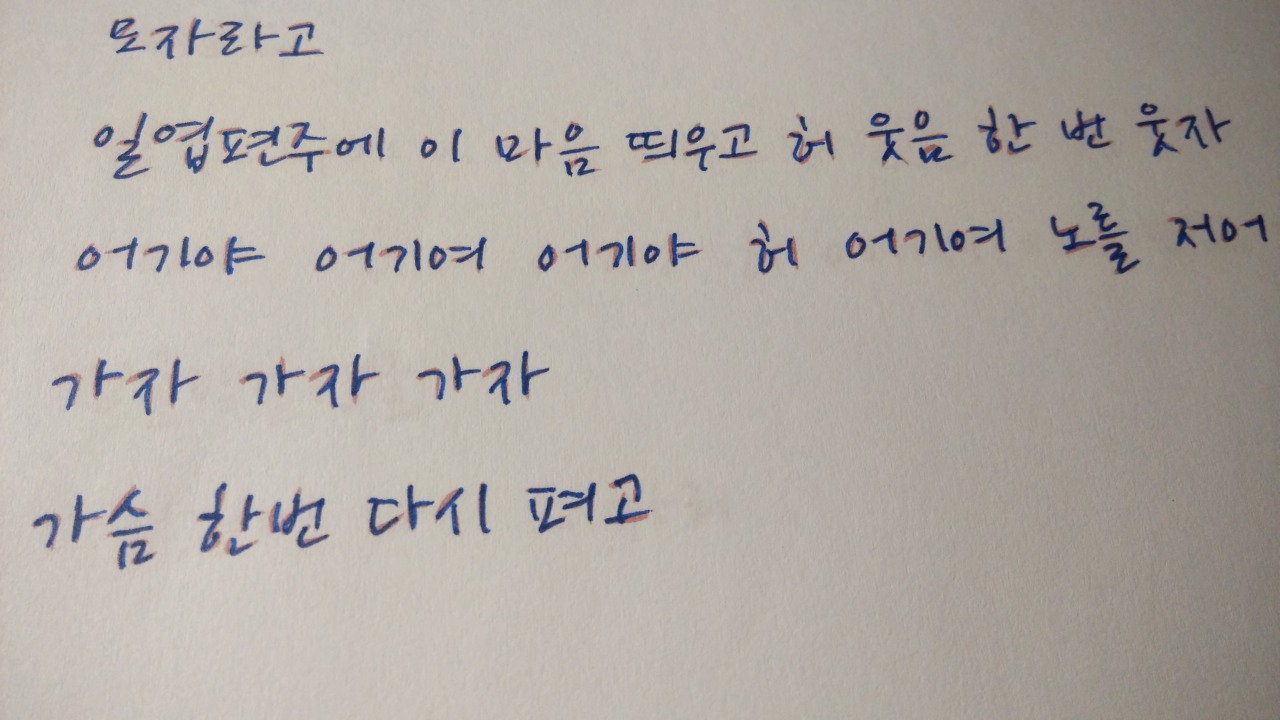 모자라고
일엽편주에 이 마음 띄우고 허 웃음 한 번 웃자
어기야 어기여 어기야 허 어기여 노를 저어
가자 가자 가자
가슴 한번 다시 펴고